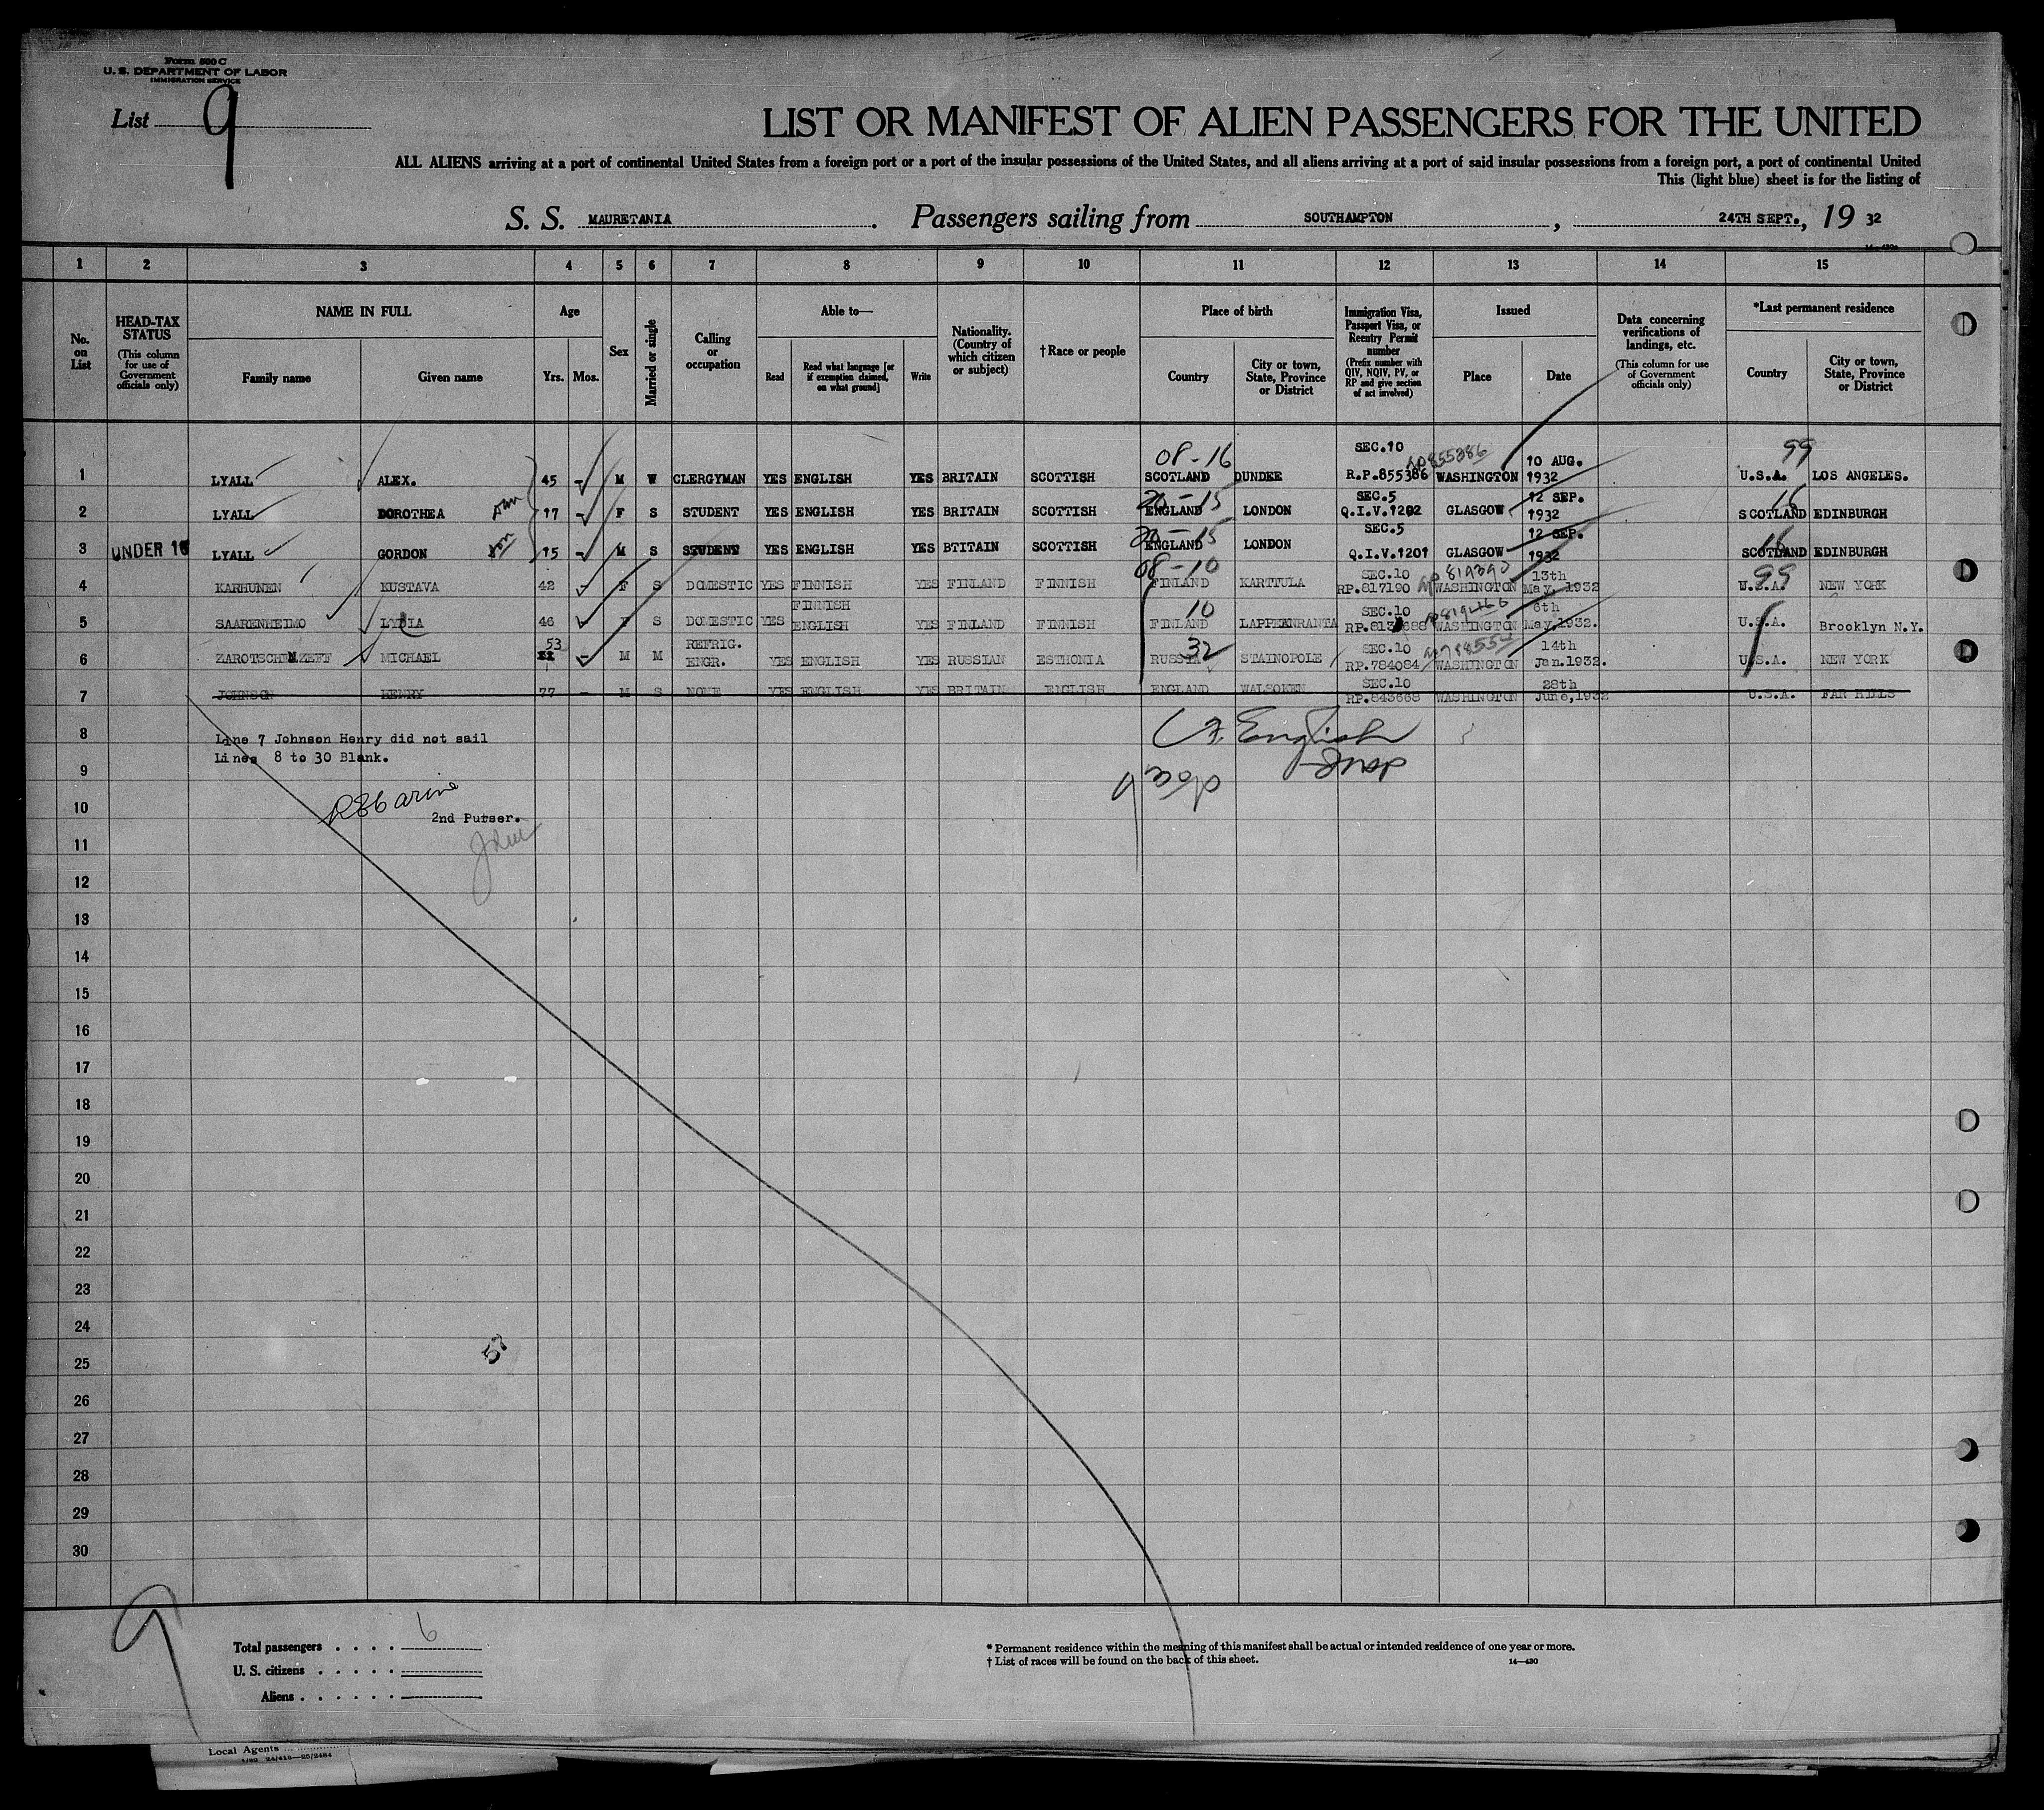 Form 500 C
U. S. DEPARTMENT OF LABOR
IMMIGRATION SERVICE
List 9
LIST OR MANIFEST OF ALIEN PASSENGERS FOR THE UNITED
ALL ALIENS arriving at a port of continental United States from a foreign port or a port of the insular possessions of the United States, and all aliens arriving at a port of said insular possessions from a foreign port, a port of continental United
This (light blue) sheet is for the listing of
S. S. MAURETANIA. Passengers sailing from SOUTHAMPTON, 24TH SEPT., 19 32
1 2 3 4 5 6 7 8 9 10 11 12 13 14 15
No. on List
HEAD-TAX STATUS
(This column for use of Government officials only)
NAME IN FULL
Family name
Given name
Age
Yrs. Mos.
Sex
Married or single
Calling or occupation
Able to—
Read
Read what language [or if exemption claimed, on what ground]
Write
Nationality. (Country of which citizen or subject)
†Race or people
Place of birth
Country
City or town, State, Province or District
Immigration Visa, Passport Visa, or Reentry Permit number
(Prefix number with QIV, NQIV, PV, or RP and give section of act involved)
Issued
Place
Date
Data concerning verifications of landings, etc.
(This column for use of Government officials only)
*Last permanent residence
Country
City or town, State, Province or District
08-16 SEC.10 855386 10 AUG. 99
1 LYALL ALEX. 45 - M W CLERGYMAN YES ENGLISH YES BRITAIN SCOTTISH SCOTLAND DUNDEE R.P.855386 WASHINGTON 1932 U.S.A. LOS ANGELES.
20-15 SEC.5 12 SEP. 16
2 LYALL DOROTHEA 17 - F S STUDENT YES ENGLISH YES BRITAIN SCOTTISH ENGLAND LONDON Q.I.V.1202 GLASGOW 1932 SCOTLAND EDINBURGH
20-15 SEC.5 12 SEP. 16
3 UNDER 16 LYALL GORDON son 15 - M S STUDENT YES ENGLISH YES BTITAIN SCOTTISH ENGLAND LONDON Q.I.V.1201 GLASGOW 1932 SCOTLAND EDINBURGH
08-10 SEC.10 13th 99
4 KARHUNEN KUSTAVA 42 - F S DOMESTIC YES FINNISH YES FINLAND FINNISH FINLAND KARTTULA RP.817190 WASHINGTON May, 1932 U.S.A. NEW YORK
FINNISH 10 SEC.10 6th
5 SAARENHEIMO LYDIA 46 - F S DOMESTIC YES ENGLISH YES FINLAND FINNISH FINLAND LAPPEENRANTA WASHINGTON May,1932. U.S.A. Brooklyn N.Y.
53 REFRIG. 32 SEC.10 14th
6 MICHAEL - M M ENGR. YES ENGLISH YES RUSSIAN ESTHONIA RUSSIA STAINOPOLE RP.784084 WASHINGTON Jan.1932. U.S.A. NEW YORK
SEC.10 28th
7 JOHNSON HENRY 77 - M S NONE YES ENGLISH YES BRITAIN ENGLISH ENGLAND WALSOKEN RP.843668 WASHINGTON June,1932 U.S.A. FAR HILLS
8 Line 7 Johnson Henry did not sail
Lines 8 to 30 Blank.
9
10 2nd Purser.
11
12
13
14
15
16
17
18
19
20
21
22
23
24
25
26
27
28
29
30
9
Total passengers . . . . 6
U. S. citizens . . . . .
Aliens . . . . . .
* Permanent residence within the meaning of this manifest shall be actual or intended residence of one year or more.
† List of races will be found on the back of this sheet.
14—430
Local Agents